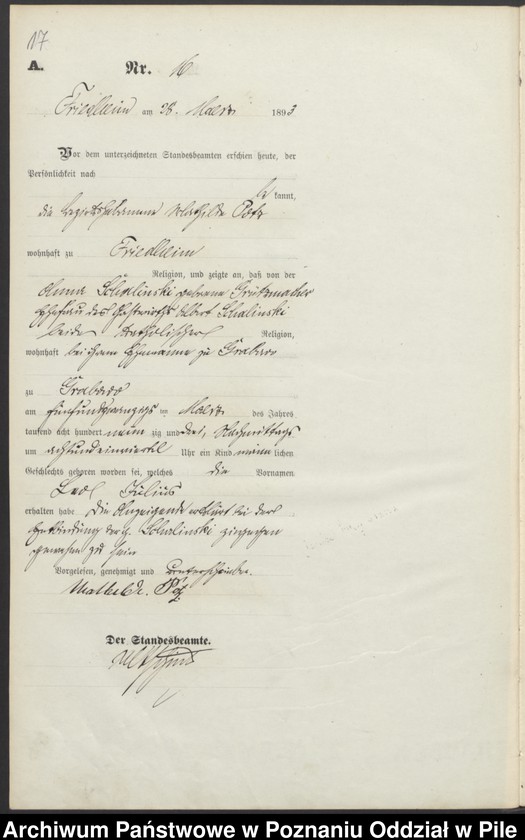 17
A.
Nr. 16
Friedheim am 28. März 1893
Vor dem unterzeichneten Standesbeamten erschien heute, der
Persönlichkeit nach
be kannt,
die Bezirkshebamme Mathilde Potz
wohnhaft zu Friedheim
Religion, und zeigte an, daß von der
Anna Schalinski geborene Grützmacher
Ehefrau des Gastwirths Albert Schalinski
beide katholischer Religion,
wohnhaft bei ihrem Ehemanne zu Grabowo
zu Grabowo
am fünfundzwanzigsten März des Jahres
tausend acht hundert neun zig und drei, Nachmittags
um acht und einviertel Uhr ein Kind männlichen
Geschlechts geboren worden sei, welches die Vornamen
Leo Julius
erhalten habe Die Anzeigende erklärt bei der
Entbindung der p. Schalinski zugegen
gewesen zu sein
Vorgelesen, genehmigt und unterschrieben.
Mathilde Potz
Der Standesbeamte.
Archiwum Państwowe w Poznaniu Oddział w Pile